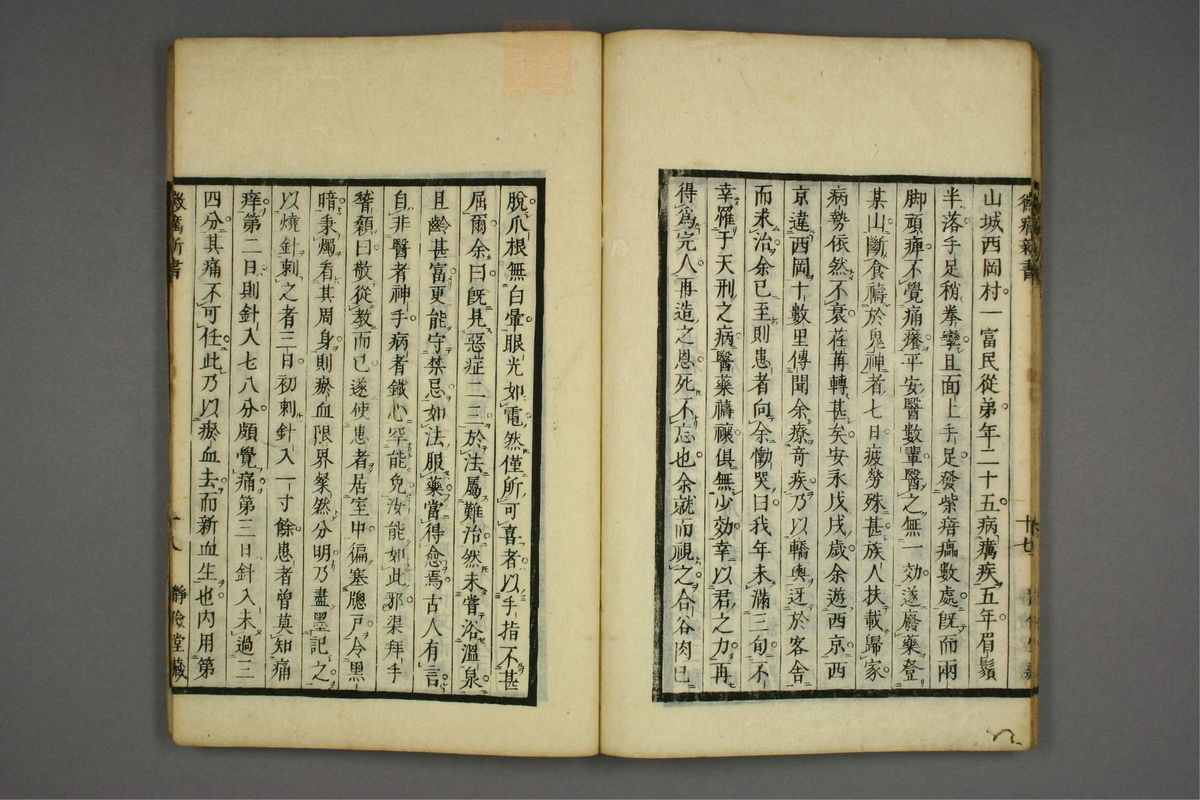 山城西岡村一富民從弟年二十五病癘疾五年眉鬚
半落手足稍拳攣且面上手足發紫痦𤺋數處既而兩
脚頑痺不覺痛癢平安醫數輩醫之無一効遂廢藥登
某山斷食禱於鬼神者七日疲勞殊甚族人扶載歸家
病勢依然不衰荏苒轉甚矣安永戊戌歲余遊西京西
京違西岡十數里傳聞余療奇疾乃以轎輿迓於客舎
而釆治余已至則患者向余慟哭曰我年未滿三旬不
幸罹于天刑之病醫藥禱禳俱無少効幸以君之力再
得爲完人再造之恩死不忘也余就而視之合谷肉已
脫爪根無白暈眼光如電然僅所可喜者以手指不甚
屈爾余曰既見惡症二三於法屬難治然未嘗浴溫泉
且齡甚富更能守禁忌如法服藥當得愈焉古人有言
自非醫者神手病者鐵心罕能免汝能如此邪渠拜手
稽顙曰敬從教而已遂使患者居室中徧塞牕戸令黑
暗秉燭看其周身則瘀血限界粲然分明乃盡墨記之
以燒針刺之者三日初刺針入一寸餘患者曾莫知痛
痒第二日則針入七八分頗覺痛第三日針入未過三
四分其痛不可任此乃以瘀血去而新血生也内用第
癘新書
十八
靜儉堂藏
十七